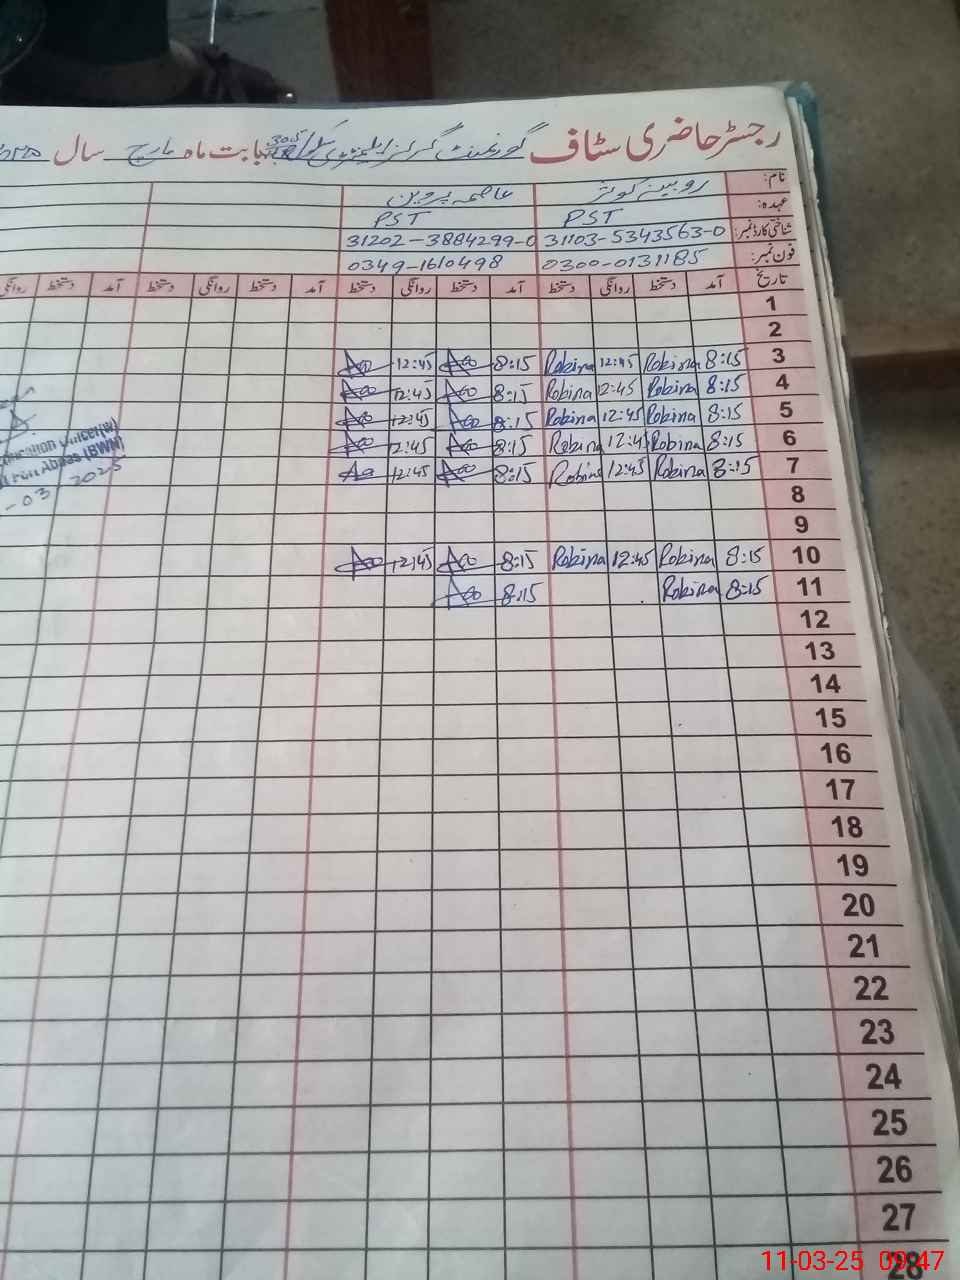 رجسٹر حاضری سٹاف گورنمنٹ گرلز ایلیمنٹری سکول بابت ماہ مارچ سال
نام: روبینہ کوثر عاصمہ پروین
عہدہ: PST PST
شناختی کارڈ نمبر: 31103-5343563-0 31202-3884299-0
فون نمبر: 0300-0131185 0349-1610498
تاریخ آمد دستخط روانگی دستخط آمد دستخط روانگی دستخط آمد دستخط روانگی دستخط آمد دستخط روانگی
1
2
3 8:15 Robina 12:45 Robina 8:15 12:45
4 8:15 Robina 12:45 Robina 8:15 12:45
5 8:15 Robina 12:45 Robina 8:15 12:45
6 8:15 Robina 12:45 Robina 8:15 12:45
7 8:15 Robina 12:45 Robina 8:15 12:45
8
9
10 8:15 Robina 12:45 Robina 8:15 12:45
11 8:15 Robina 8:15
12
13
14
15
16
17
18
19
20
21
22
23
24
25
26
27
28
(BWN)
03 2025
11-03-25 09:47